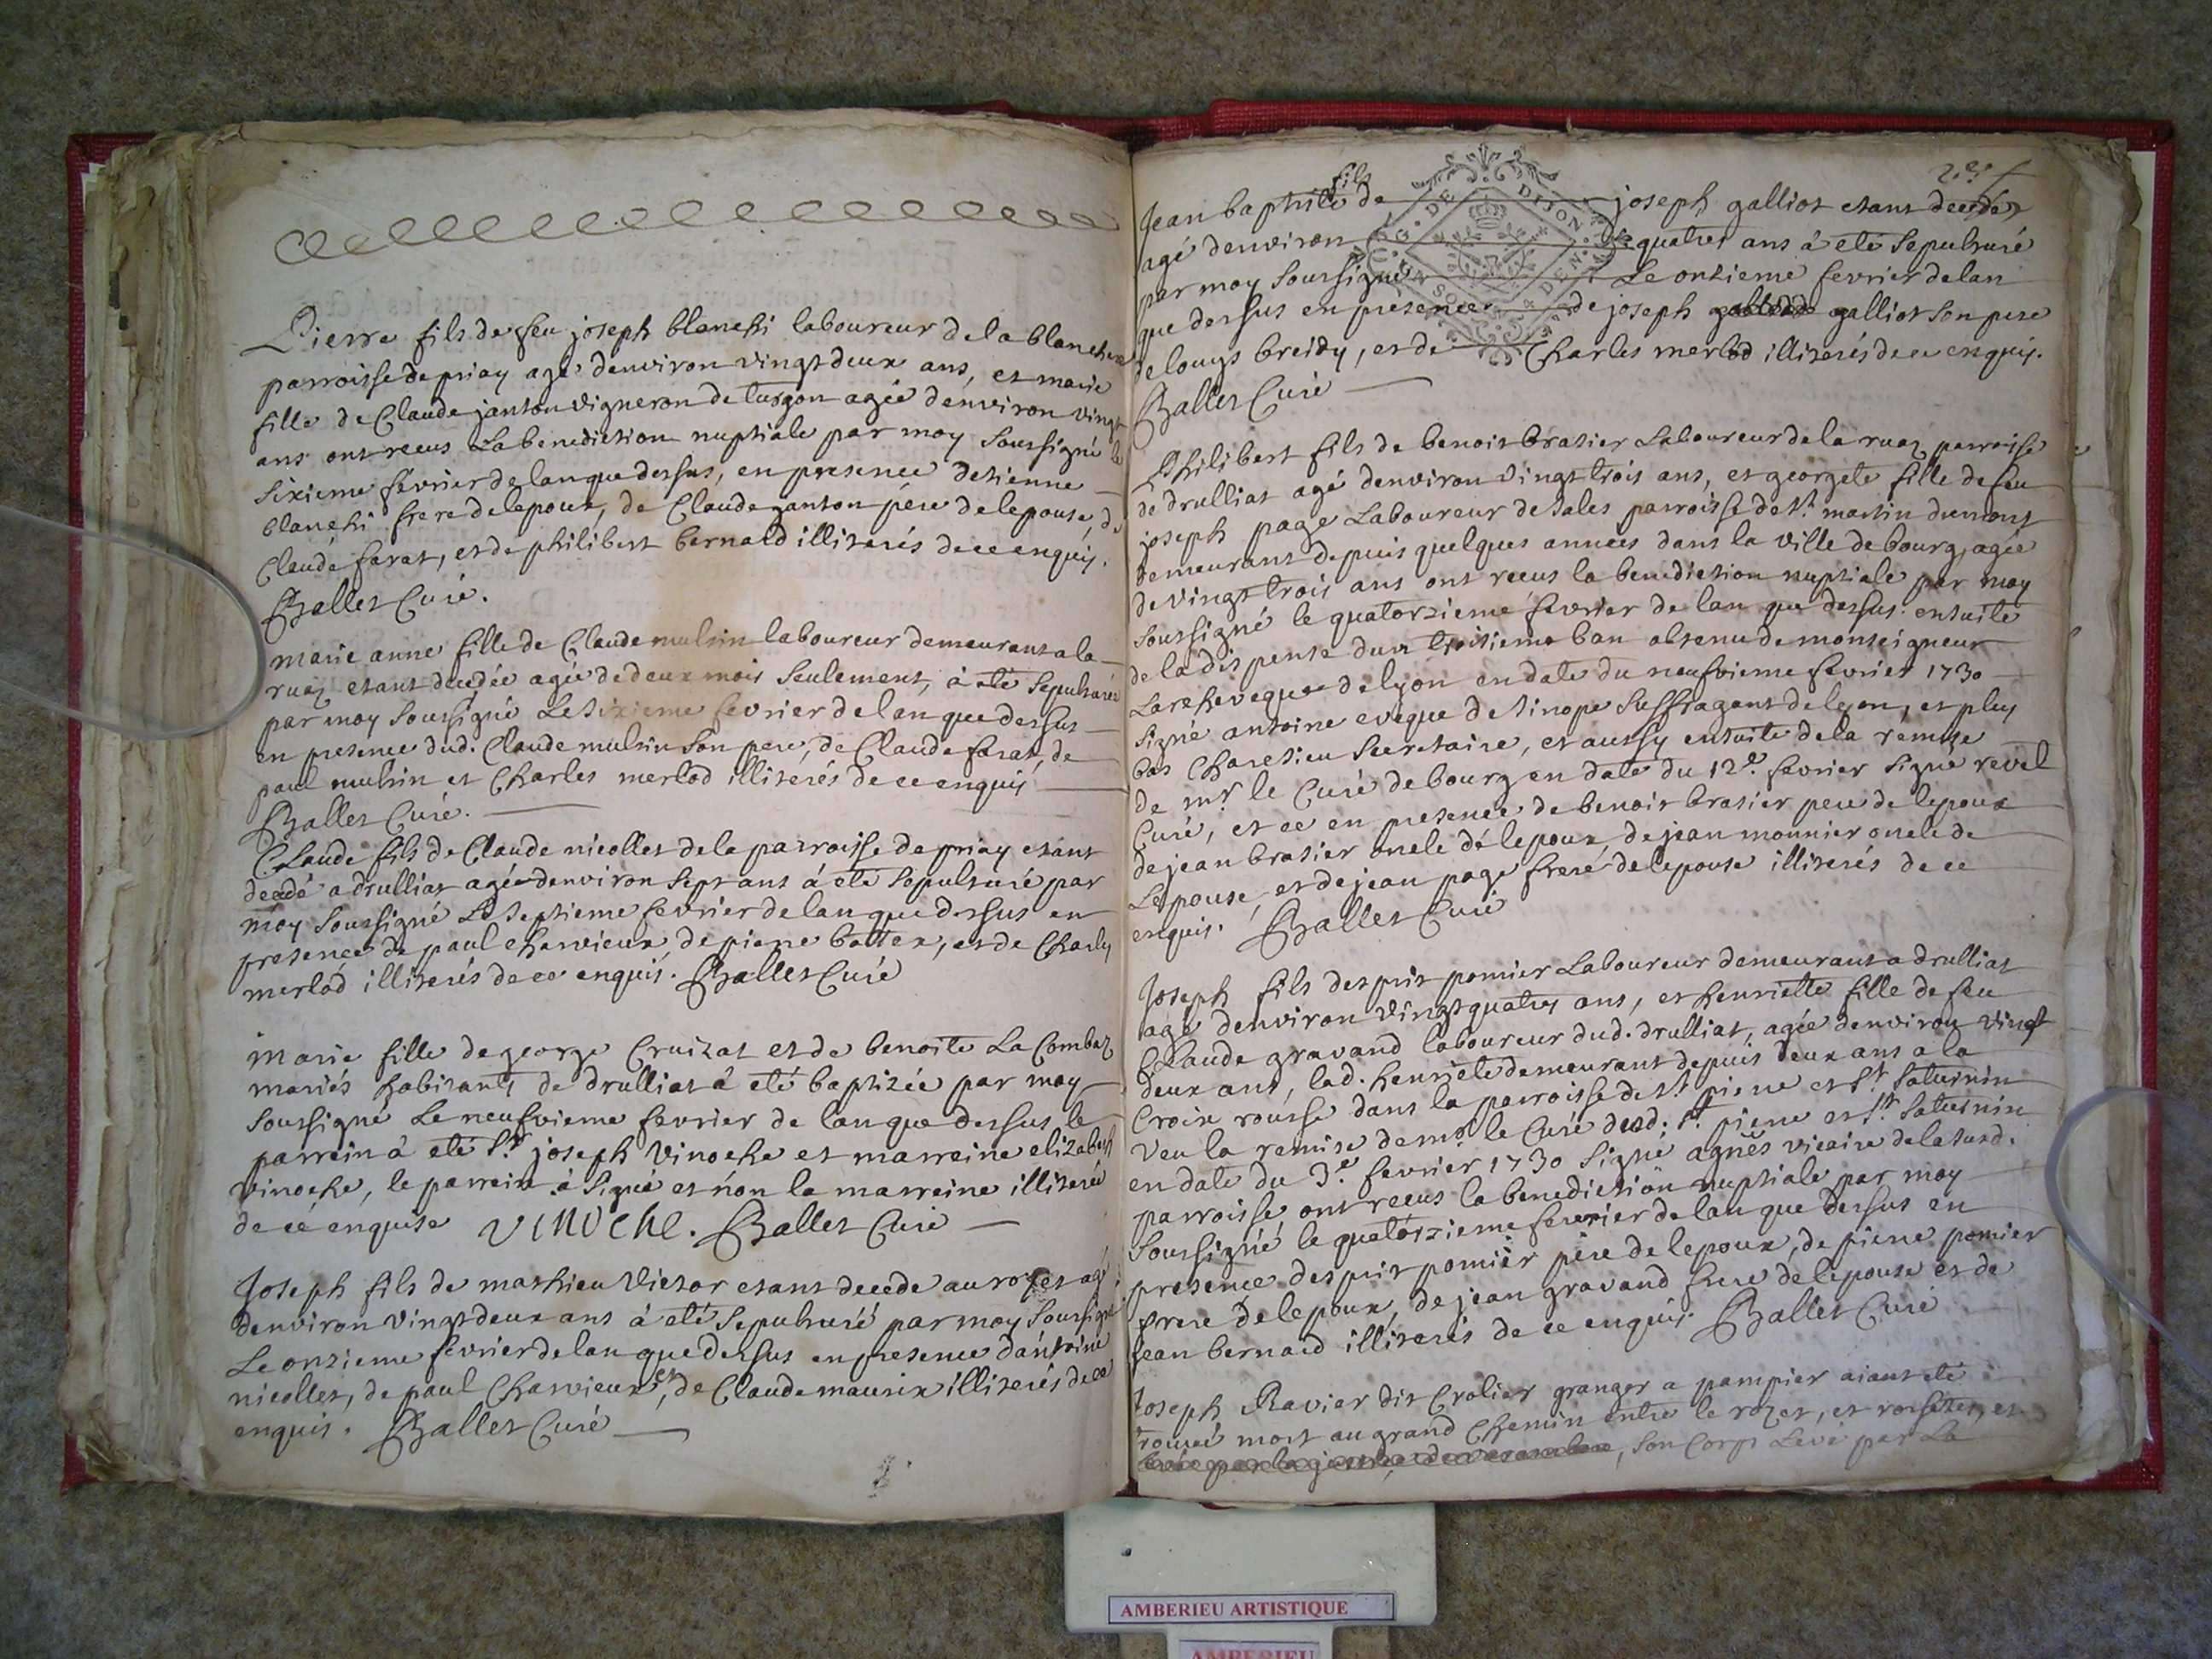 Pierre fils de feu joseph blanchi laboureur de la
parroisse de priay agé denviron vingt deux ans, et marie
fille de Claude janton vigneron de turgon agée denviron vingt
ans ont receus La benediction nuptiale par moy soussigné le
sixieme fevrier de lan que dessus, en presence detienne
blanchi frere de lepoux, de Claude janton père de lepouse, de
Claude farat, et de philibert bernard illiterés de ce enquis.
Ballet Curé.
marie anne fille de Claude mulsin laboureur demeurant a la
ruaz etant decedée agée de deux mois seulement, à eté sepulturée
par moy soussigné Le sixieme fevrier de lan que dessus
en presence dud. Claude mulsin son pere, de Claude farat, de
paul mulsin et Charles merlod illiterés de ce enquis
Ballet Curé.
Claude fils de Claude nicollet de la parroisse de priay etant
decedé a drulliat agé denviron sept ans à eté sepulturé par
moy soussigné Le septieme fevrier de lan que dessus en
presence de paul charvieux de pierre battex, et de Charles
merlod illiterés de ce enquis. Ballet Curé
marie fille de george Cruizat et de benoite La Combaz
mariés habitants de drulliat à eté baptizée par moy
soussigné Le neufvieme fevrier de lan que dessus le
parrein à eté Sr. joseph vinoche et marreine elizabeth
vinoche, le parrein à signé et non la marreine illiterée
de cé enquise VINOCHE. Ballet Curé
Joseph fils de mathieu victor etant decedé au rozet agé
denviron vingt deux ans à eté sepulturé par moy soussigné
Le onzieme fevrier de lan que dessus en presence dantoine
nicollet, de paul Charvieux, et de Claude maurix illiterés de ce
enquis. Ballet Curé
Jean baptiste fils de joseph galliot etant decedé
agé denviron quatres ans à eté sepulturé
par moy soussigné Le onzieme fevrier de lan
que dessus en presence de joseph galliot son pere
de louys breidy, et de Charles merlod illiterés de ce enquis.
Ballet Curé
Philibert fils de benoit brasier Laboureur de la ruaz parroisse
de drulliat agé denviron vingt trois ans, et georgete fille de feu
joseph page Laboureur de sales parroisse de St. martin dumont
demeurant depuis quelques années dans la ville de bourg, agée
de vingt trois ans ont receus la benediction nuptiale par moy
soussigné le quatorzieme fevrier de lan que dessus ensuite
de la dispense dun troisieme ban obtenu de monseigneur
Larcheveque de lyon en date du neufvieme fevrier 1730
signé antoine evêque de sinope suffragant de lyon, et plus
bas Charetieu secretaire, et aussy ensuite de la remise
de mr. le Curé de bourg en date du 12e. fevrier signé revel
Curé, et ce en presence de benoit brasier pere de lepoux
de jean brasier oncle de lepoux, de jean monnier oncle de
Lepouse, et de jean page frere de lepouse illiterés de ce
enquis. Ballet Curé
Joseph fils desprit pomier Laboureur demeurant a drulliat
agé denviron vingt quatres ans, et henriette fille de feu
Claude gravand laboureur dud. drulliat, agée denviron vingt
deux ans, lad. henriete demeurant depuis deux ans a la
Croix rousse dans la parroisse de St. pierre et St. Saturnin
veu la remise de mr. le Curé dud. St. pierre et St. Saturnin
en date du 3e. fevrier 1730 signé agnês vicaire de la susd.
parroisse ont receus la benediction nuptiale par moy
soussigné le quatorzieme fevrier de lan que dessus en
presence desprit pomier père de lepoux, de pierre pomier
frere de lepoux, de jean gravand frere de lepouse et de
jean bernard illiterés de ce enquis. Ballet Curé
Joseph Ravier dit Crolier granger a pampier aiant eté
trouvé mort au grand Chemin entre le rozet, et et
son Corps Levé par La
G. DE DIJON
AMBERIEU ARTISTIQUE
AMBERIEU